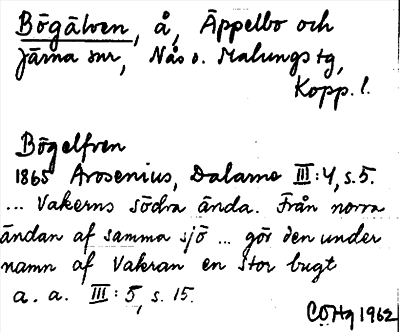 Bögälven, å, Äppelbo och
Järna snr, Nås o. Malungs tg,
Kopp. l.
Bögelfven
1865 Arosenius, Dalarne III:4, s. 5.
... Vakerns södra ända. Från norra
ändan af samma sjö ... gör den under
namn af Vakran en stor bugt
a. a. III: 5, s. 15.
COHg 1962